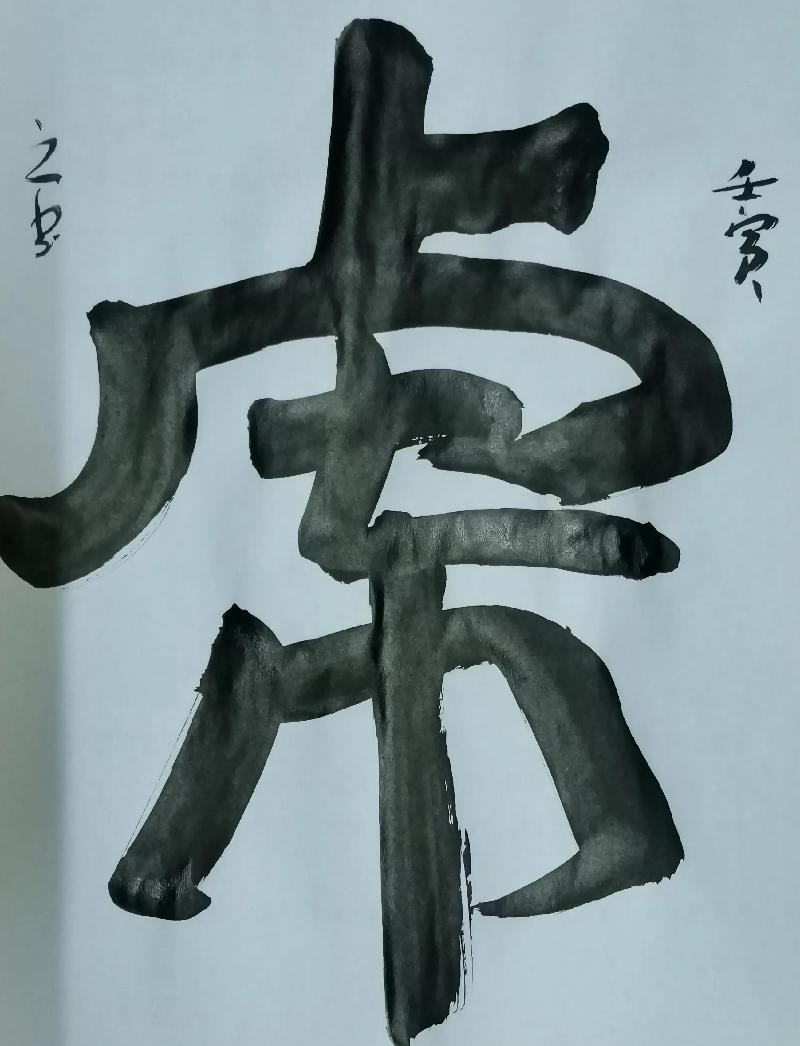 壬寅
虎
之书